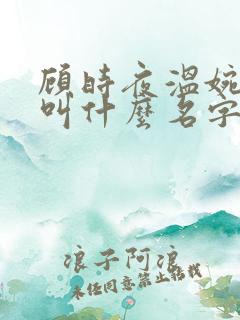 顾时夜温婉
叫什麽名字
浪子阿浪
未经同意禁止转载